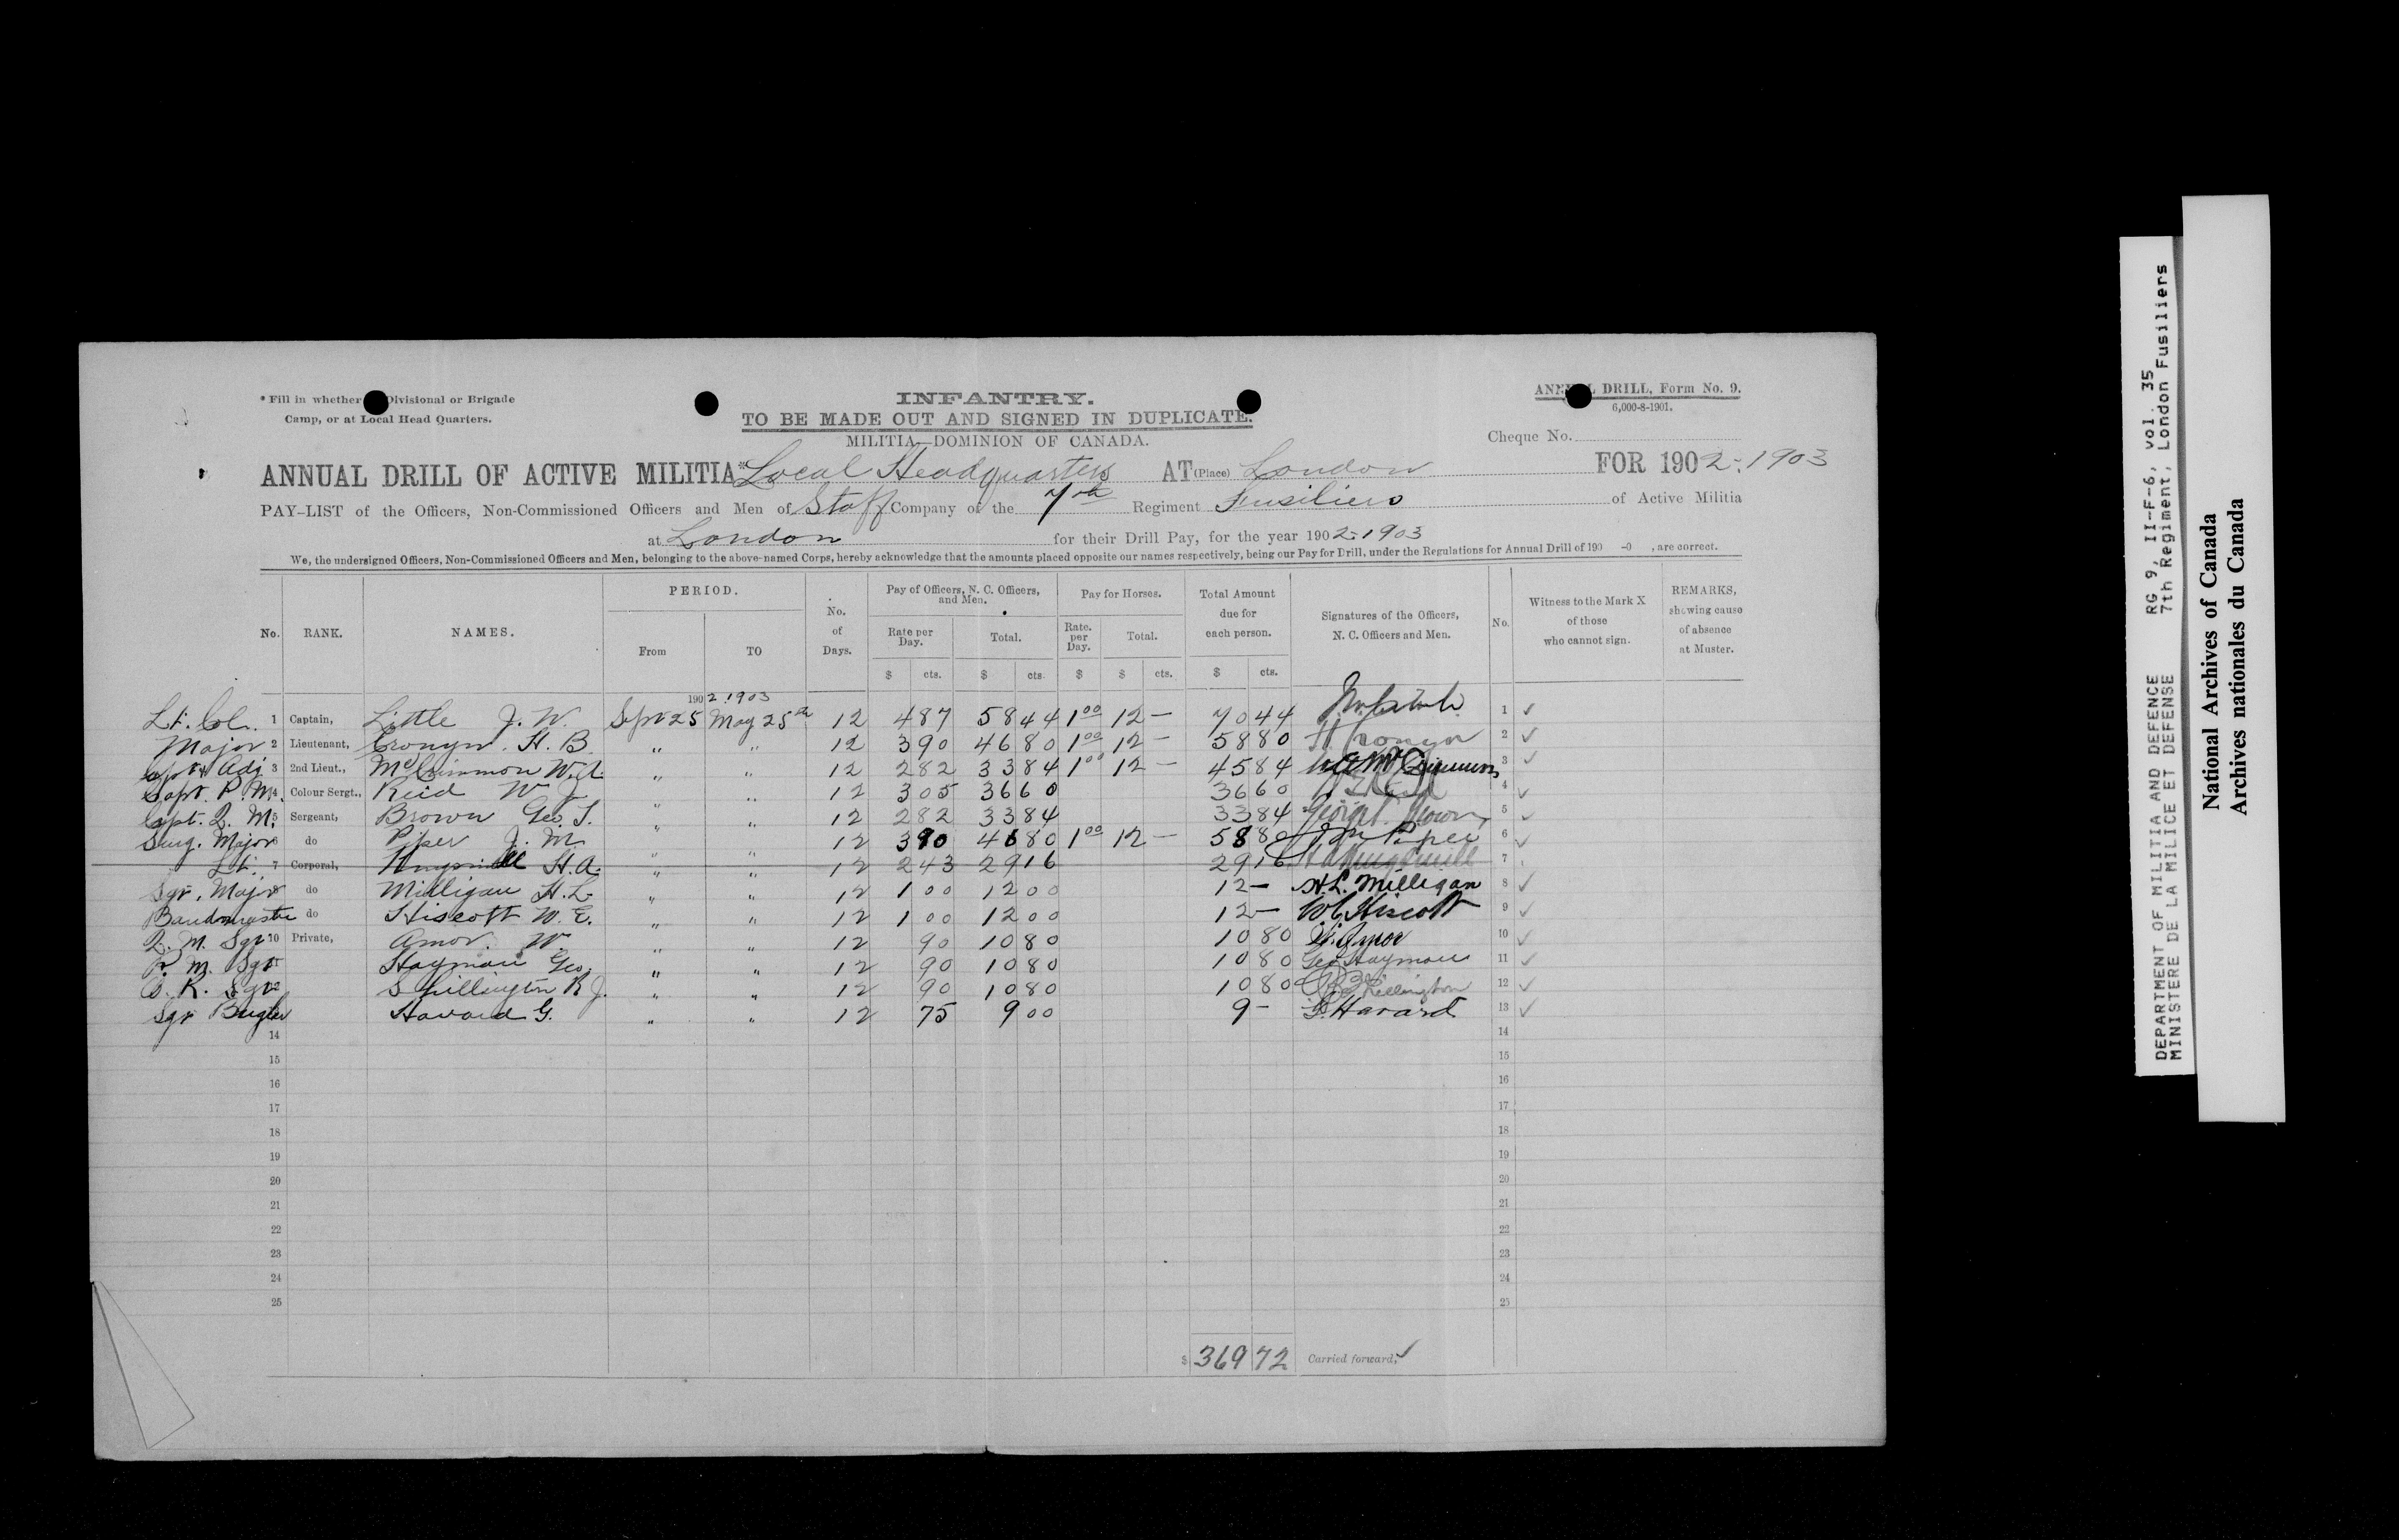 * Fill in whether Divisional or Brigade
Camp, or at Local Head Quarters.
INFANTRY.
TO BE MADE OUT AND SIGNED IN DUPLICATE.
MILITIA—DOMINION OF CANADA.
DRILL, Form No. 9.
6,000-8-1901.
Cheque No.
ANNUAL DRILL OF ACTIVE MILITIA* Local Headquarters AT (Place) London FOR 1902-1903
PAY-LIST of the Officers, Non-Commissioned Officers and Men of Staff Company of the 7th Regiment Fusiliers of Active Militia
at London for their Drill Pay, for the year 1902-1903
We, the undersigned Officers, Non-Commissioned Officers and Men, belonging to the above-named Corps, hereby acknowledge that the amounts placed opposite our names respectively, being our Pay for Drill, under the Regulations for Annual Drill of 190 -0 , are correct.
No. RANK. NAMES. PERIOD. From TO No. of Days. Pay of Officers, N. C. Officers, and Men. Rate per Day. Total. Pay for Horses. Rate. per Day. Total. Total Amount due for each person. Signatures of the Officers, N. C. Officers and Men. No. Witness to the Mark X of those who cannot sign. REMARKS, showing cause of absence at Muster.
$ cts. $ cts. $ $ cts. $ cts.
1902.1903
Lt. Col. 1 Captain, Little J. W. Sept 25 May 25th 12 4 87 58 44 1 00 12 — 70 44 1 ✓
Major 2 Lieutenant, Cronyn. H. B. " " 12 3 90 46 80 1 00 12 — 58 80 H Cronyn 2 ✓
Capt & Adj 3 2nd Lieut., McCrimmon W. A. " " 12 2 82 33 84 1 00 12 — 45 84 W A McCrimmon 3 ✓
Capt. P. M. 4 Colour Sergt., Reid W J " " 12 3 05 36 60 36 60 4 ✓
Capt. Q. M. 5 Sergeant, Brown Geo. T. " " 12 2 82 33 84 33 84 George T. Brown 5 ✓
Surg. Major 6 do Piper J. M. " " 12 3 90 46 80 1 00 12 — 58 80 J M Piper 6 ✓
Lt. 7 Corporal, Kingsmill H. A. " " 12 2 43 29 16 29 16 H A Kingsmill 7
Sgt. Major 8 do Milligan H. L. " " 12 1 00 12 00 12 — H. L. Milligan 8 ✓
Bandmaster do Hiscott W. E. " " 12 1 00 12 00 12 — W E Hiscott 9 ✓
Q. M. Sgt 10 Private, Amor. W. " " 12 90 10 80 10 80 W. Amor 10 ✓
P. M. Sgt Hayman Geo. " " 12 90 10 80 10 80 Geo Hayman 11 ✓
O. R. Sgt Shillington R J. " " 12 90 10 80 10 80 Shillington 12 ✓
Sgt Bugler Havard G. " " 12 75 9 00 9 — G. Havard 13 ✓
14 14
15 15
16 16
17 17
18 18
19 19
20 20
21 21
22 22
23 23
24 24
25 25
$ 369 72 Carried forward, ✓
DEPARTMENT OF MILITIA AND DEFENCE RG 9, II-F-6, vol. 35
MINISTERE DE LA MILICE ET DEFENSE 7th Regiment, London Fusiliers
National Archives of Canada
Archives nationales du Canada